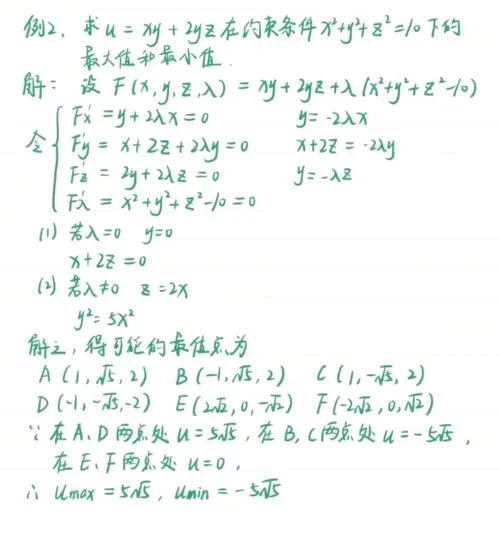 例2. 求 u = xy + 2yz 在约束条件 x²+y²+z²=10 下的
最大值和最小值.
解: 设 F(x, y, z, λ) = xy + 2yz + λ(x²+y²+z²-10)
令 { F'x = y + 2λx = 0    y = -2λx
F'y = x + 2z + 2λy = 0    x + 2z = -2λy
F'z = 2y + 2λz = 0    y = -λz
F'λ = x² + y² + z² - 10 = 0
(1) 若 λ=0  y=0
x + 2z = 0
(2) 若 λ≠0  z = 2x
y² = 5x²
解之, 得可能的最值点为
A (1, √5, 2)  B (-1, √5, 2)  C (1, -√5, 2)
D (-1, -√5, -2)  E (2√2, 0, -√2)  F (-2√2, 0, √2)
∵ 在 A、D 两点处 u = 5√5, 在 B, C 两点处 u = -5√5,
在 E、F 两点处 u = 0,
∴ Umax = 5√5, Umin = -5√5